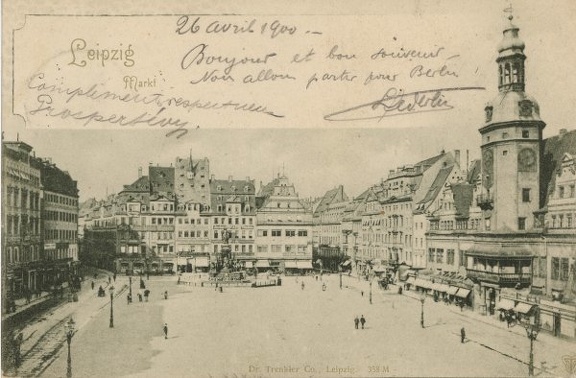 26 avril 1900 —
Leipzig
Bonjour et bon souvenir —
Markt
Nous allons partir pour Berlin
Compliments respectueux
Dr. Trenkler Co., Leipzig. 358 M